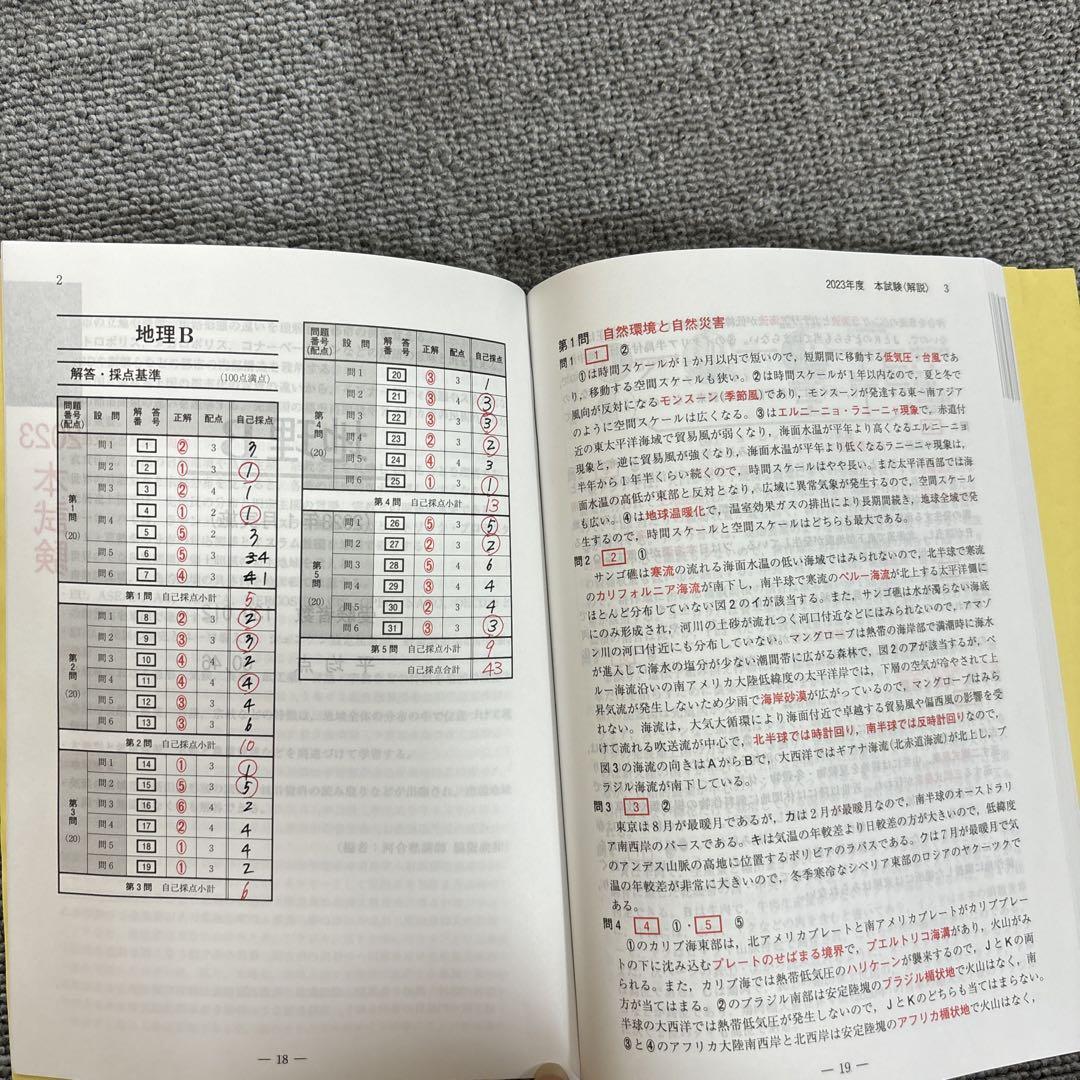 2
地理B
解答・採点基準 (100点満点)
問題番号(配点) 設問 解答番号 正解 配点 自己採点
第1問(20)
問1 1 ② 3 3
問2 2 ① 3 1
問3 3 ② 4 1
問4 4 ① 2 1
5 ⑤ 2 3
問5 6 ⑤ 3 4
問6 7 ④ 3 1
第1問 自己採点小計 5
第2問(20)
問1 8 ② 3 2
問2 9 ③ 3 3
問3 10 ④ 4 2
問4 11 ④ 4 4
問5 12 ③ 3 4
問6 13 ③ 3 6
第2問 自己採点小計 10
第3問(20)
問1 14 ① 3 1
問2 15 ⑤ 3 5
問3 16 ⑥ 4 2
問4 17 ② 4 4
問5 18 ① 3 4
問6 19 ① 3 2
第3問 自己採点小計 6
問題番号(配点) 設問 解答番号 正解 配点 自己採点
第4問(20)
問1 20 ③ 3 1
問2 21 ③ 4 3
問3 22 ③ 3 3
問4 23 ② 3 2
問5 24 ④ 4 3
問6 25 ① 3 1
第4問 自己採点小計 13
第5問(20)
問1 26 ⑤ 3 5
問2 27 ② 3 2
問3 28 ⑤ 4 6
問4 29 ③ 4 4
問5 30 ② 3 4
問6 31 ③ 3 3
第5問 自己採点小計 9
自己採点合計 43
— 18 —
2023年度 本試験(解説) 3
第1問 自然環境と自然災害
問1 1 ②
①は時間スケールが1か月以内で短いので，短期間に移動する低気圧・台風であ
り，移動する空間スケールも狭い。②は時間スケールが1年以内なので，夏と冬で
風向が反対になるモンスーン(季節風)であり，モンスーンが発達する東〜南アジア
のように空間スケールは広くなる。③はエルニーニョ・ラニーニャ現象で，赤道付
近の東太平洋海域で貿易風が弱くなり，海面水温が平年より高くなるエルニーニョ
現象と，逆に貿易風が強くなり，海面水温が平年より低くなるラニーニャ現象は，
半年から1年半くらい続くので，時間スケールはやや長い。また太平洋西部では海
面水温の高低が東部と反対となり，広域に異常気象が発生するので，空間スケール
も広い。④は地球温暖化で，温室効果ガスの排出により長期間続き，地球全域で発
生するので，時間スケールと空間スケールはどちらも最大である。
問2 2 ①
サンゴ礁は寒流の流れる海面水温の低い海域ではみられないので，北半球で寒流
のカリフォルニア海流が南下し，南半球で寒流のペルー海流が北上する太平洋側に
ほとんど分布していない図2のイが該当する。また，サンゴ礁は水が濁らない海底
にのみ形成され，河川の土砂が流れつく河口付近などにはみられないので，アマゾ
ン川の河口付近にも分布していない。マングローブは熱帯の海岸部で満潮時に海水
が進入して海水の塩分が少ない潮間帯に広がる森林で，図2のアが該当するが，ペ
ルー海流沿いの南アメリカ大陸低緯度の太平洋岸では，下層の空気が冷やされて上
昇気流が発生しないため少雨で海岸砂漠が広がっているので，マングローブはみら
れない。海流は，大気大循環により海面付近で卓越する貿易風や偏西風の影響を受
けて流れる吹送流が中心で，北半球では時計回り，南半球では反時計回りなので，
図3の海流の向きはAからBで，大西洋ではギアナ海流(北赤道海流)が北上し，ブ
ラジル海流が南下している。
問3 3 ②
東京は8月が最暖月であるが，カは2月が最暖月なので，南半球のオーストラリ
ア南西岸のパースである。キは気温の年較差より日較差の方が大きいので，低緯度
のアンデス山脈の高地に位置するボリビアのラパスである。クは7月が最暖月で気
温の年較差が非常に大きいので，冬季寒冷なシベリア東部のロシアのヤクーツクで
ある。
問4 4 ①・5 ⑤
①のカリブ海東部は，北アメリカプレートと南アメリカプレートがカリブプレー
トの下に沈み込むプレートのせばまる境界で，プエルトリコ海溝があり，火山がみ
られる。また，カリブ海では熱帯低気圧のハリケーンが襲来するので，JとKの両
方が当てはまる。②のブラジル南部は安定陸塊のブラジル楯状地で火山はなく，南
半球の大西洋では熱帯低気圧が発生しないので，JとKのどちらも当てはまらない。
③と④のアフリカ大陸南西岸と北西岸は安定陸塊のアフリカ楯状地で火山はなく，
— 19 —